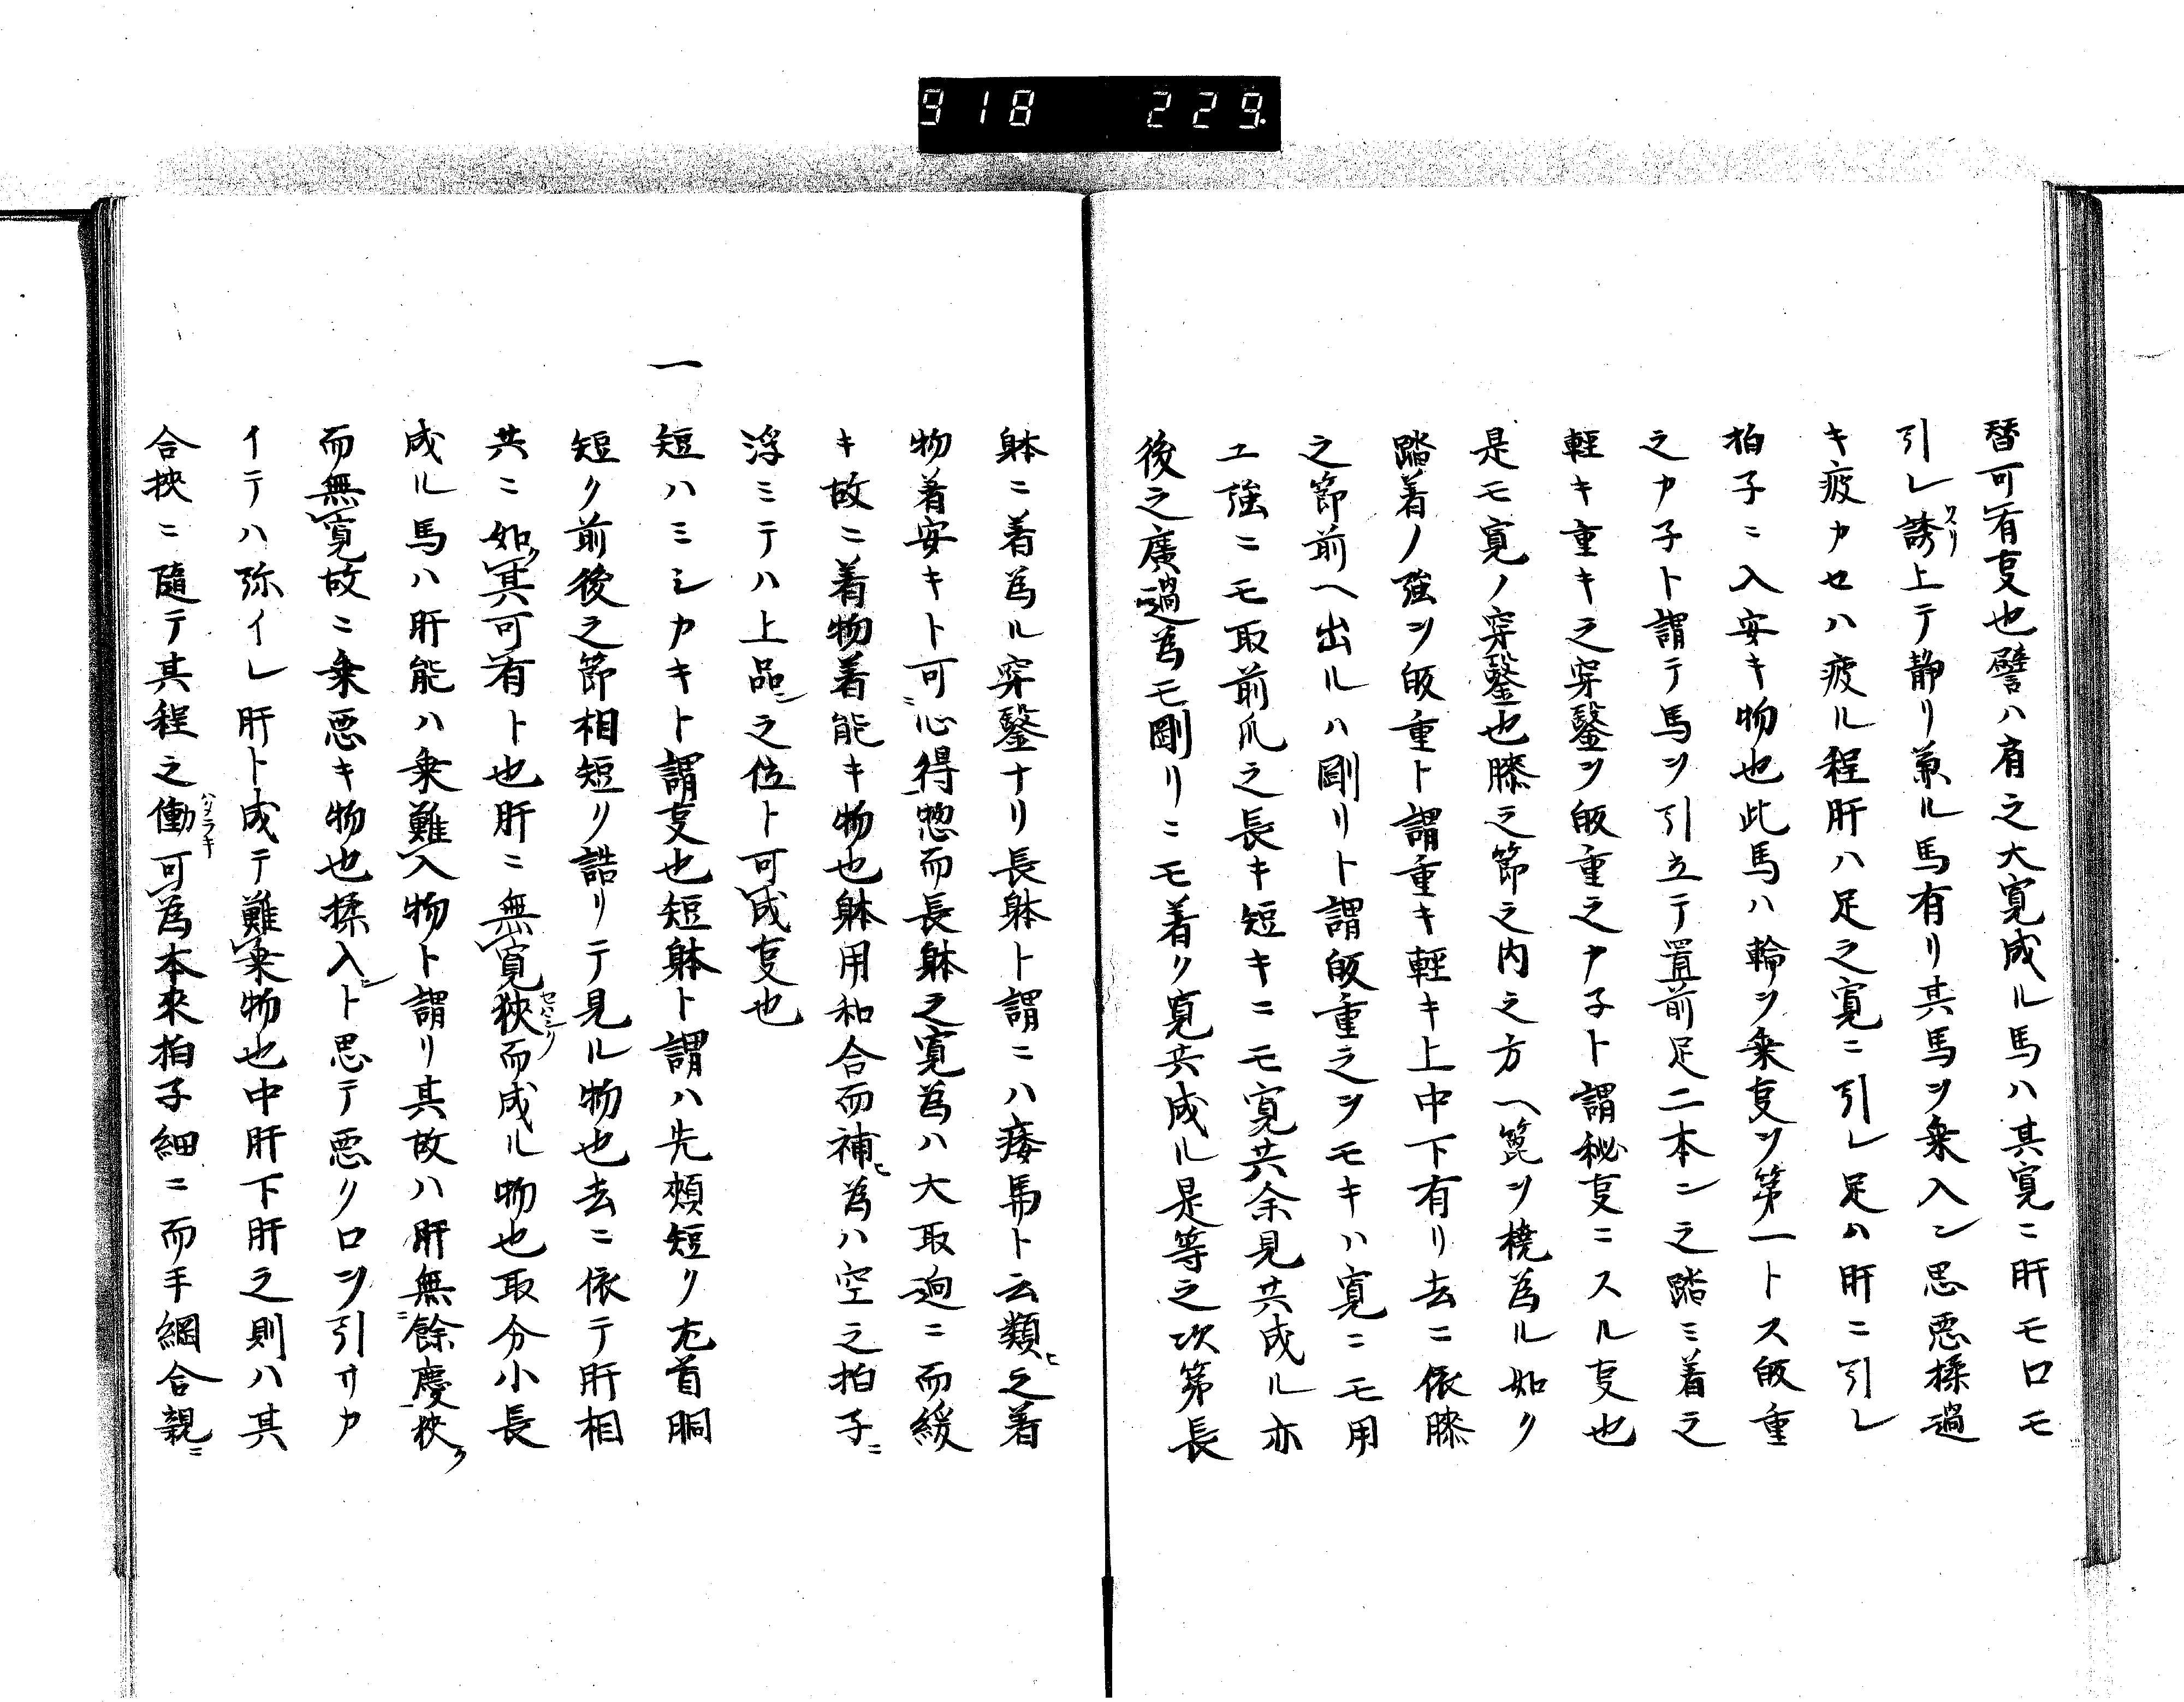 918 229.
替可有叓也譬ハ有之大寛成ル馬ハ其寛ニ肝モロモ
引レ誘上テ静リ兼ル馬有リ其馬ヲ乗入ン思悪揉過
キ疲カセハ疲ル程肝ハ足之寛ニ引レ足ハ肝ニ引レ
拍子ニ入安キ物也此馬ハ輪ヲ乗叓ヲ第一トス皈重
之カ子ト謂テ馬ヲ引立テ置前足二本ン之踏ミ着之
軽キ重キ之穿鑿ヲ皈重之カ子ト謂秘叓ニスル叓也
是モ寛ノ穿鑿也膝之節之内之方ヘ篦ヲ撓為ル如ク
踏着ノ強ヲ皈重ト謂重キ軽キ上中下有リ去ニ依膝
之節前ヘ出ルハ剛リト謂皈重之ヲモキハ寛ニモ用
エ強ニモ取前爪之長キ短キニモ寛共余見共成ル亦
後之廣過為モ剛リニモ着ク寛共成ル是等之次第長
躰ニ着為ル穿鑿ナリ長躰ト謂ニハ痿馬ト云類ヒ之着
物着安キト可ニ心得惣而長躰之寛為ハ大取廻ニ而緩
キ故ニ着物着能キ物也躰用和合而補ヒ為ハ空之拍子ニ
浮ミテハ上品ン之位ト可成叓也
一 短ハミシカキト謂叓也短躰ト謂ハ先頬短ク尢首胴
短ク前後之節相短リ詰リテ見ル物也去ニ依テ肝相
共ニ如ク其可有ト也肝ニ無寛狹セハシク而成ル物也取分小長
成ル馬ハ肝能ハ乗難入物ト謂リ其故ハ肝無ニ餘慶狹ク
而無寛故ニ乗悪キ物也揉入ント思テ悪ク口ヲ引サカ
イテハ弥イレ肝ト成テ難乗物也中肝下肝之則ハ其
合挾ニ隨テ其程之働ハタラキ可為本来拍子細ニ而手綱合親ニ